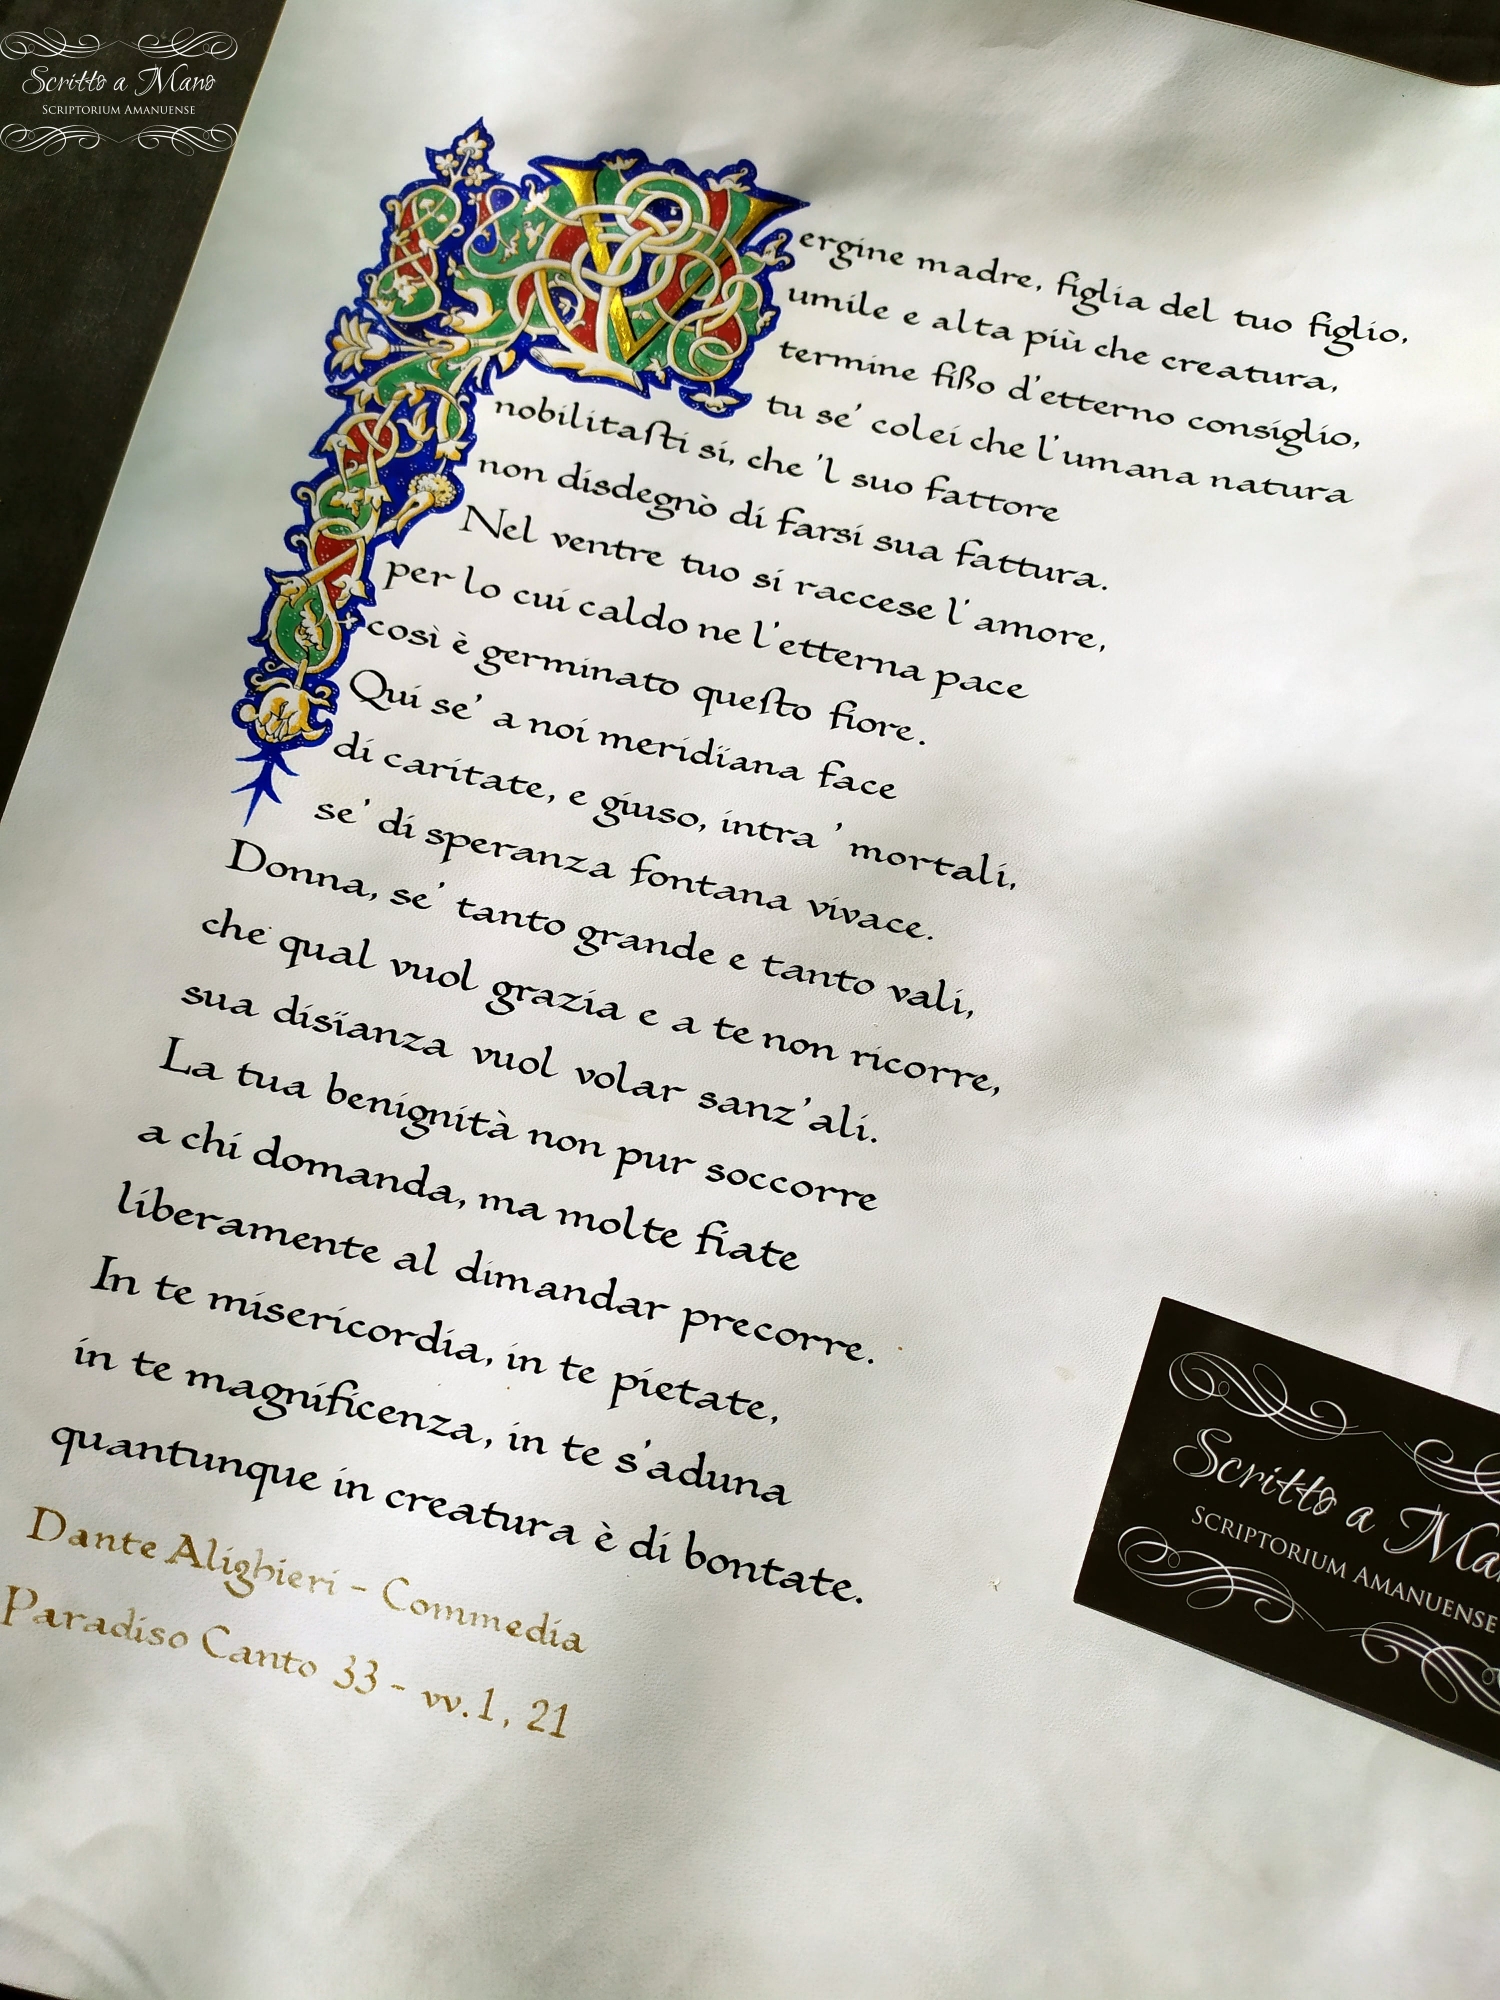 Scritto a Mano
SCRIPTORIUM AMANUENSE
Vergine madre, figlia del tuo figlio,
umile e alta più che creatura,
termine fißo d'etterno consiglio,
tu se' colei che l'umana natura
nobilitaſti si, che 'l suo fattore
non disdegnò di farsi sua fattura.
Nel ventre tuo si raccese l'amore,
per lo cui caldo ne l'etterna pace
così è germinato queſto fiore.
Qui se' a noi meridïana face
di caritate, e giuso, intra 'mortali,
se' di speranza fontana vivace.
Donna, se' tanto grande e tanto vali,
che qual vuol grazia e a te non ricorre,
sua disïanza vuol volar sanz'ali.
La tua benignità non pur soccorre
a chi domanda, ma molte fiate
liberamente al dimandar precorre.
In te misericordia, in te pietate,
in te magnificenza, in te s'aduna
quantunque in creatura è di bontate.
Dante Alighieri - Commedia
Paradiso Canto 33 - vv.1, 21
Scritto a Ma
SCRIPTORIUM AMANUENSE